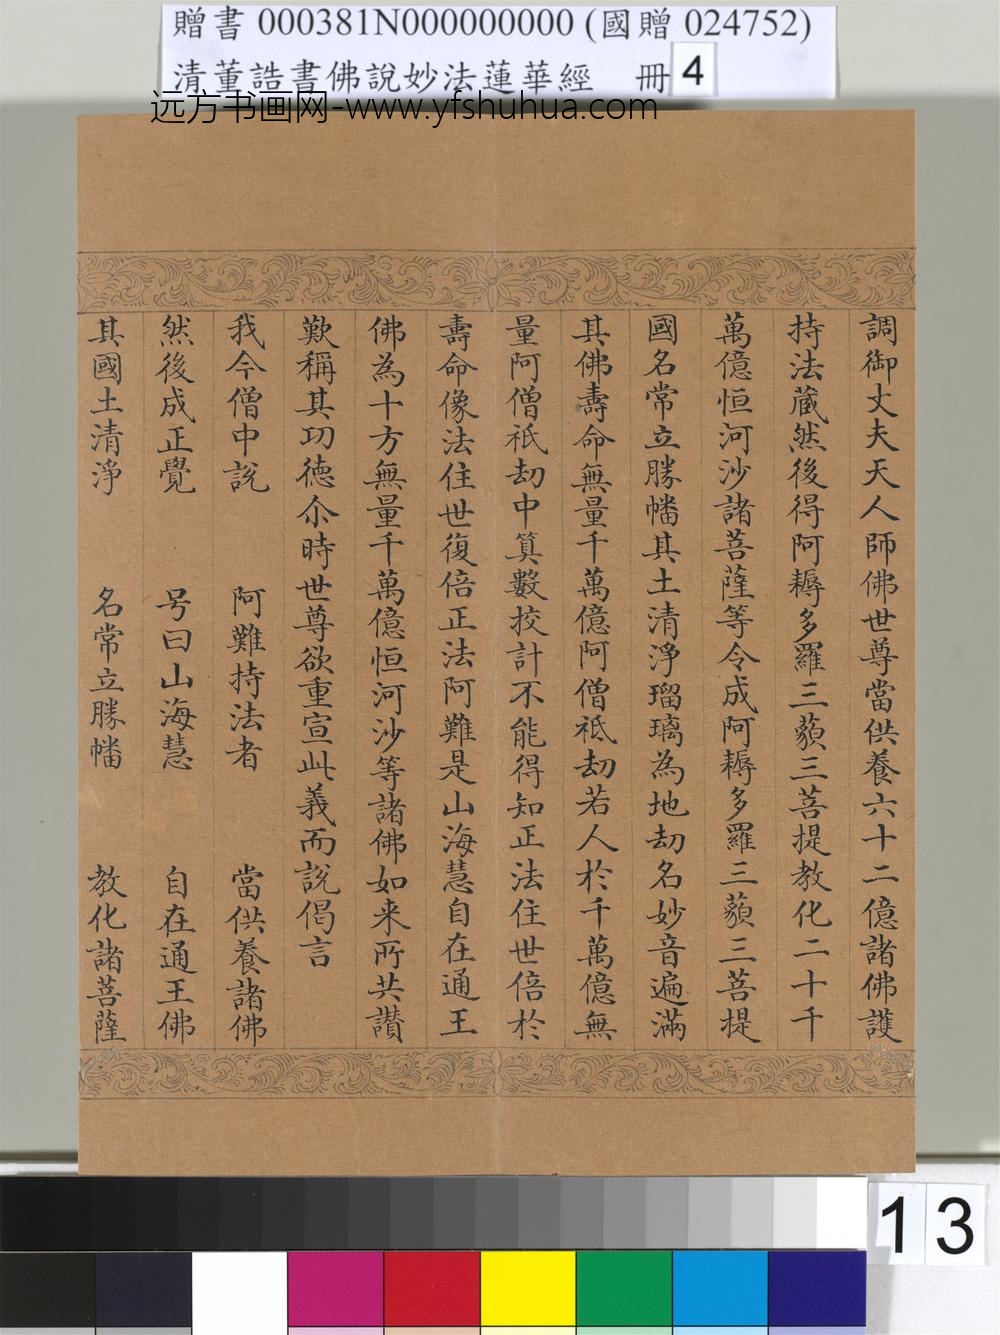 贈書 000381N000000000 (國贈 024752)
清董誥書佛說妙法蓮華經 冊 4
远方书画网-www.yfshuhua.com
調御丈夫天人師佛世尊當供養六十二億諸佛護
持法藏然後得阿耨多羅三藐三菩提教化二十千
萬億恒河沙諸菩薩等令成阿耨多羅三藐三菩提
國名常立勝幡其土清淨瑠璃為地劫名妙音遍滿
其佛壽命無量千萬億阿僧祇劫若人於千萬億無
量阿僧祇劫中算數挍計不能得知正法住世倍於
壽命像法住世復倍正法阿難是山海慧自在通王
佛為十方無量千萬億恒河沙等諸佛如来所共讃
歎稱其功德尒時世尊欲重宣此義而說偈言
我今僧中說 阿難持法者 當供養諸佛
然後成正覺 号曰山海慧 自在通王佛
其國土清淨 名常立勝幡 教化諸菩薩
13